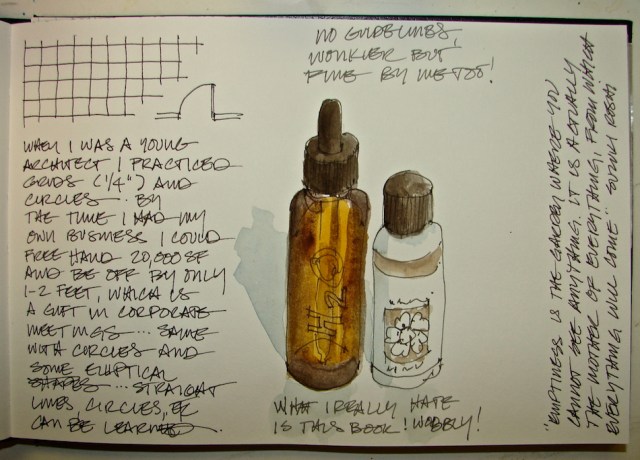 NO GUIDELINES,
WONKIER BUT
FINE BY ME TOO!
WHEN I WAS A YOUNG
ARCHITECT I PRACTICED
GRIDS (1/4") AND
CIRCLES .. BY
THE TIME I HAD MY
OWN BUSINESS I COULD
FREE HAND 20,000 SF
AND BE OFF BY ONLY
1-2 FEET, WHICH IS
A GIFT IN CORPORATE
MEETINGS ... SAME
WITH CIRCLES AND
SOME ELLIPTICAL
SHAPES ... STRAIGHT
LINES, CIRCLES, ETC
CAN BE LEARNED
H2O
WHAT I REALLY HATE
IS THIS BOOK! WOBBLY!
"EMPTINESS IS THE GARDEN WHERE YOU
CANNOT SEE ANYTHING. IT IS ACTUALLY
THE MOTHER OF EVERYTHING, FROM WHICH
EVERYTHING WILL COME" SUZUKI ROSHI